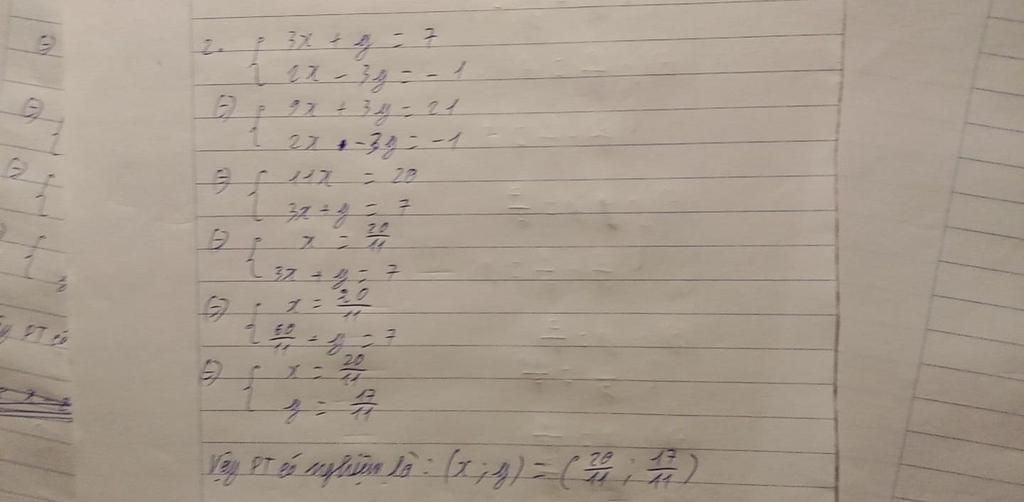 2. { 3x + y = 7
2x - 3y = -1
⇔ { 9x + 3y = 21
2x - 3y = -1
⇔ { 11x = 20
3x + y = 7
⇔ { x = 20/11
3x + y = 7
⇔ { x = 20/11
60/11 + y = 7
⇔ { x = 20/11
y = 17/11
Vậy PT có nghiệm là : (x ; y) = (20/11 ; 17/11)